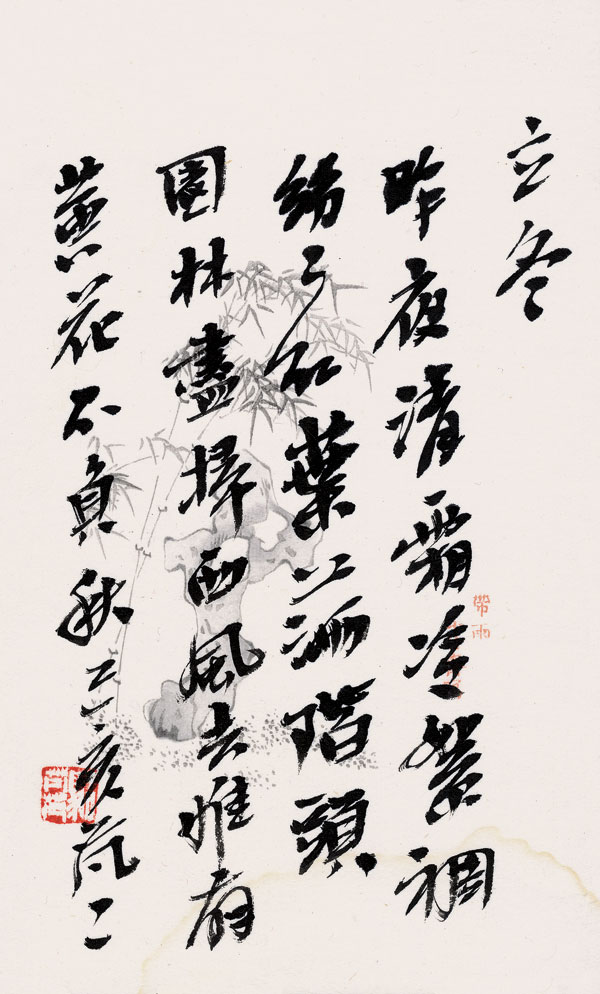 立冬
昨夜清霜冷絮裯
紛々紅葉滿階頭
園林盡掃西風去惟有
黃花不負秋己亥
帶雨